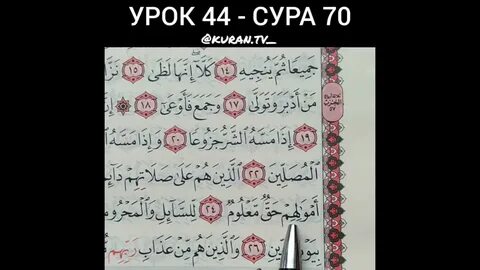 УРОК 44 - СУРА 70
@KURAN.TV_
جَمِيعًا ثُمَّ يُنجِيهِ ١٤ كَلَّا إِنَّهَا لَظَىٰ ١٥
مَنْ أَدْبَرَ وَتَوَلَّىٰ ١٧ وَجَمَعَ فَأَوْعَىٰ ١٨
١٩ إِذَا مَسَّهُ الشَّرُّ جَزُوعًا ٢٠ وَإِذَا مَسَّهُ
الْمُصَلِّينَ ٢٢ الَّذِينَ هُمْ عَلَىٰ صَلَاتِهِمْ
أَمْوَالِهِمْ حَقٌّ مَعْلُومٌ ٢٤ لِلسَّائِلِ وَالْمَحْرُومِ
٢٦ وَالَّذِينَ هُمْ مِنْ عَذَابِ رَبِّهِمْ